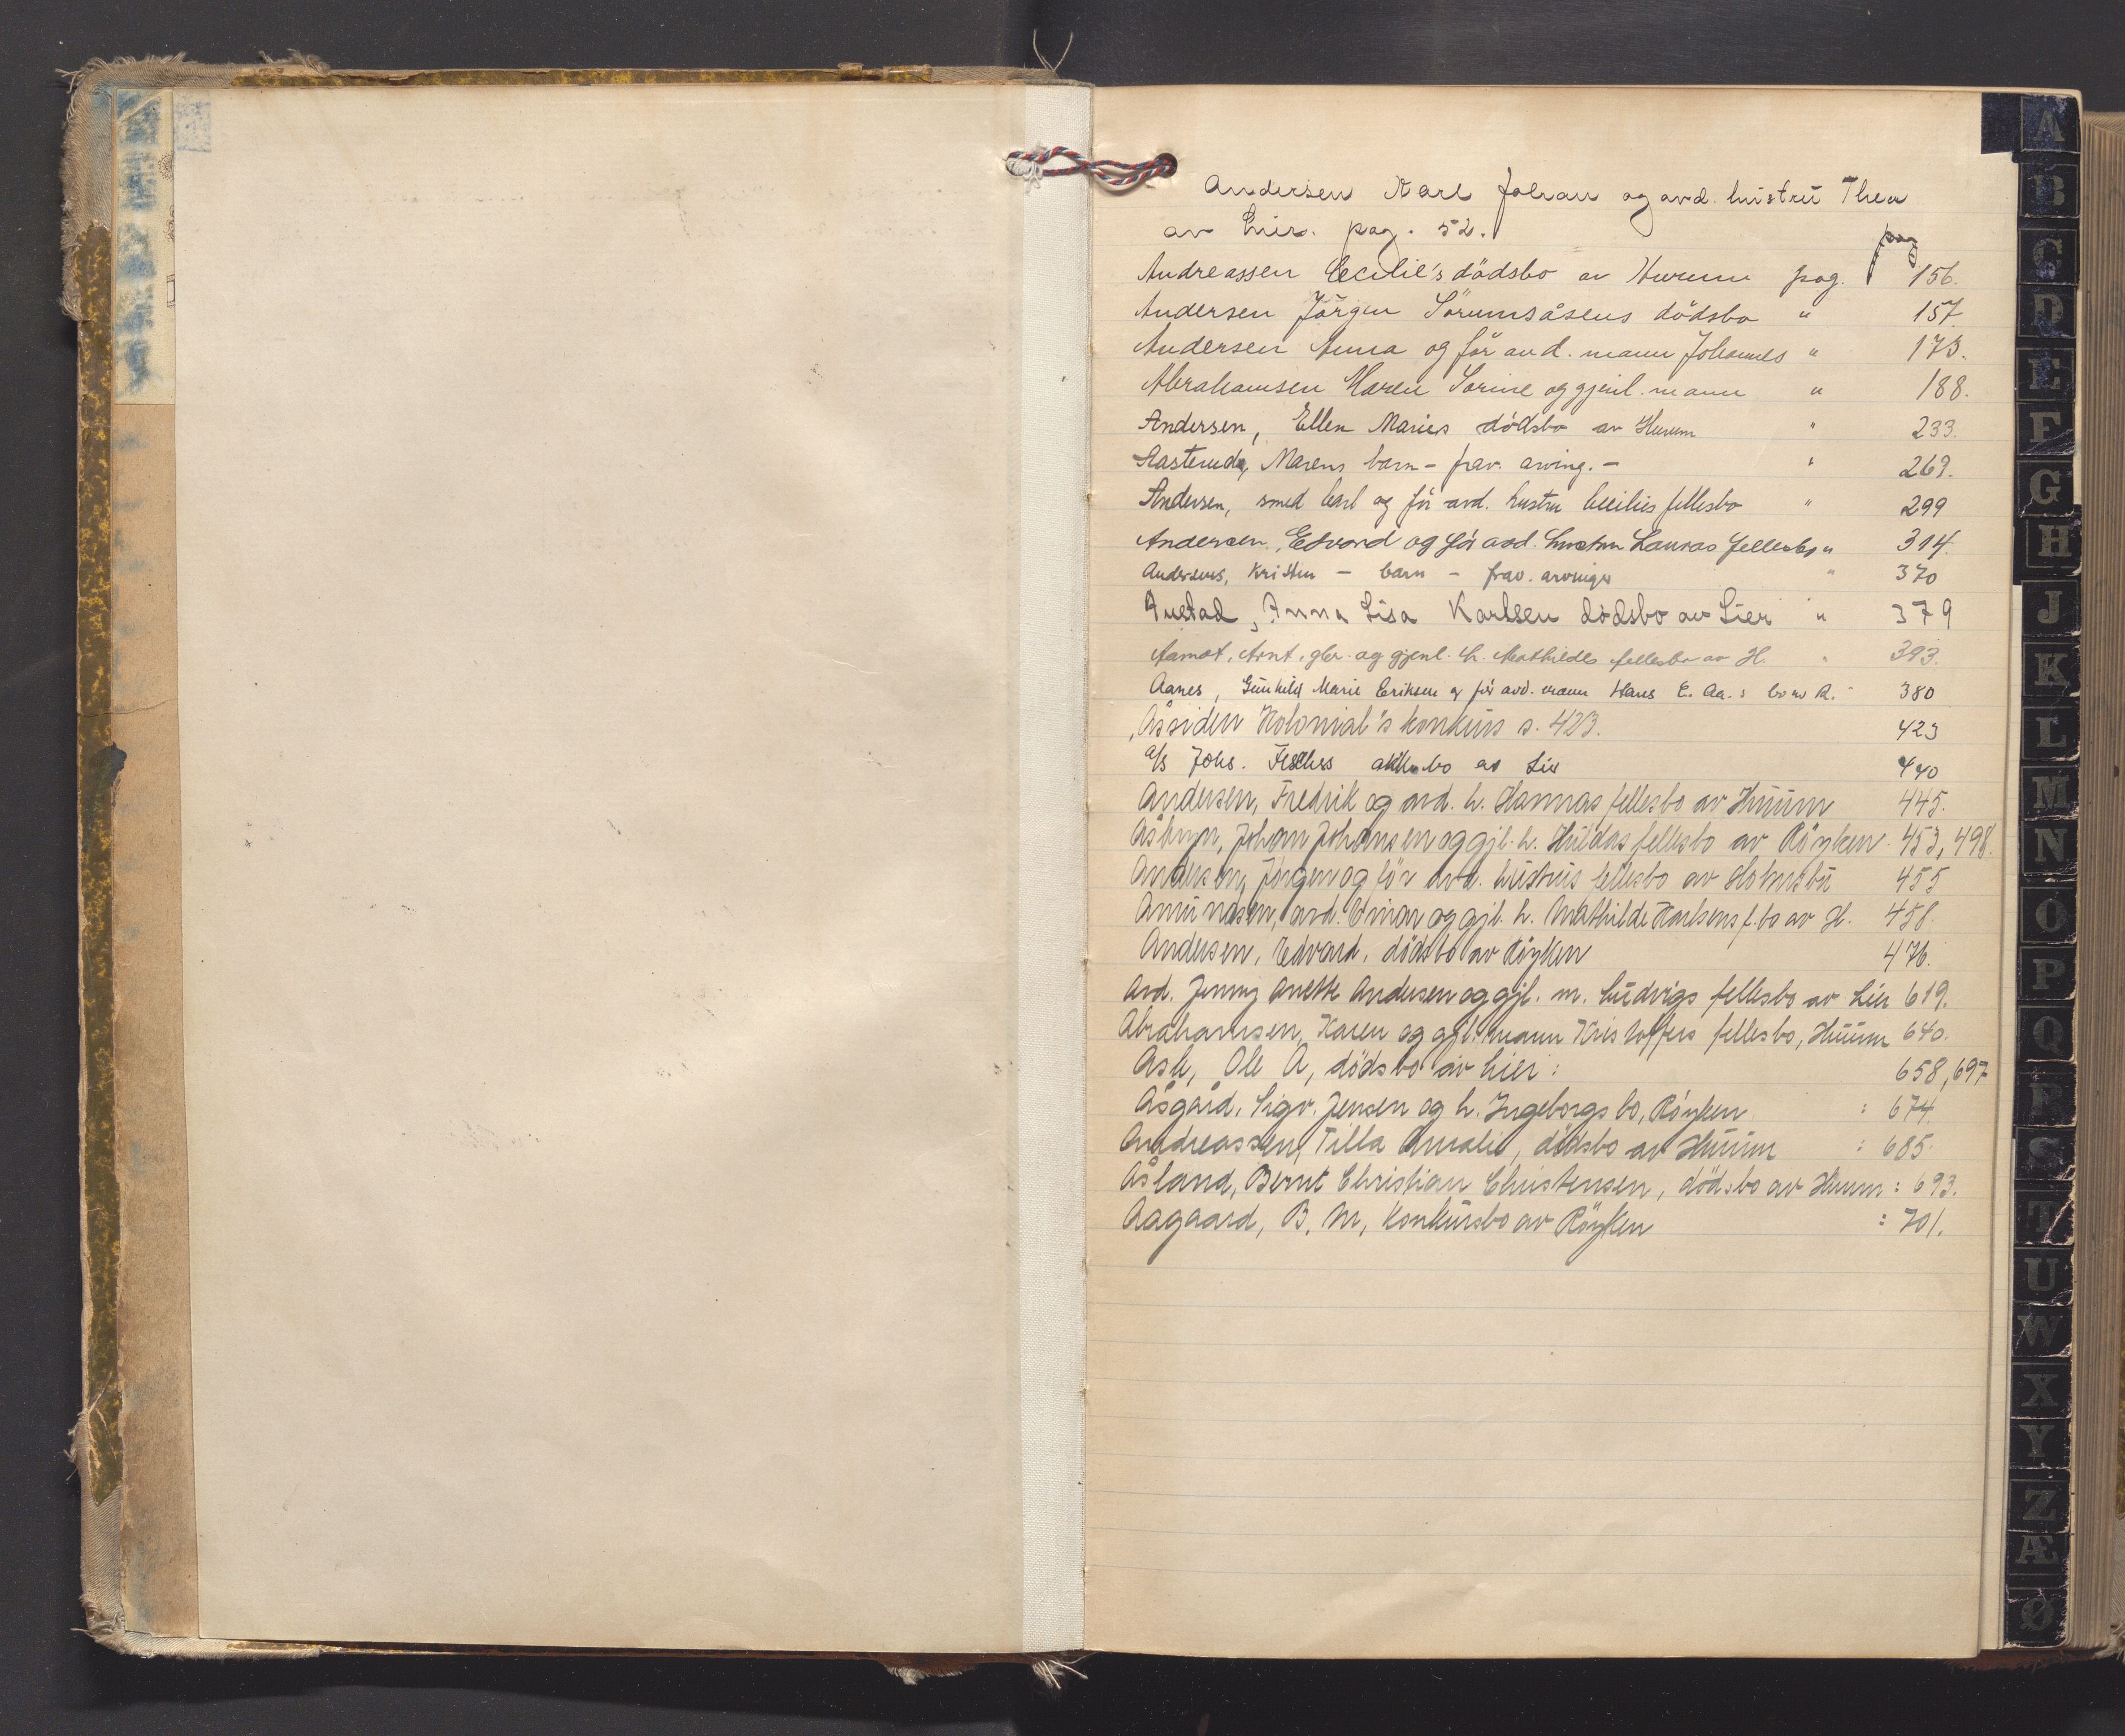 Andersen Karl Johan og avd. hustru Thea
av Lier. pag. 52.
pag
Andreassen Cecilie's dödsbo av Hurum pag. 156.
Andersen Jörgen Sörumsåsens dödsbo " 157.
Andersen Anna og för avd. mann Johannes " 173.
Abrahamsen Maren Sorine og gjenl. mann " 188.
Andersen, Ellen Maries dödsbo av Hurum " 233.
Aasterud, Marens barn - frav. arving. - " 269.
Andersen, smed Carl og för avd. hustru Cecilies fellesbo " 299
Andersen, Edvard og för avd. hustru Lauras fellesbo " 314.
Andersens, Kristen - barn - frav. arvinger " 370
Austad, Anna Lisa Karlsen dödsbo av Lier " 379
Aamot, Arnt, gbr. og gjenl. h. Mathildes fellesbo av H. " 393.
Aanes, Gunhild Marie Eriksen og för avd. mann Hans E. Aa.s bo av R. " 380
Åssiden Kolonial's konkurs s. 423. 423
a/s Johs. bo av Lier 440
Andersen, Fredrik og avd. h. Hannas fellesbo av Hurum 445.
Johan Johansen og gjl. h. Huldas fellesbo av Röyken 453, 498.
Andersen, Jörgen og för avd. hustrus fellesbo av Holmsbu 455
Amundsen, avd. Einar og gjl. h. Mathilde Karlsens f.bo av H. 458.
Andersen, Edvard, dödsbo av Röyken 476.
Avd. Jenny Anette Andersen og gjl. m. Ludvigs fellesbo av Lier 619.
Abrahamsen, Karen og gjl. mann Kristoffers fellesbo, Hurum 640.
Ask, Ole A, dödsbo av Lier : 658, 697
Åsgård, Sigv. Jensen og h. Ingeborgs bo, Röyken : 674.
Andreassen, Tilla Amalie, dödsbo av Hurum : 685.
Åsland, Bernt Christian Christensen, dödsbo av Hurum : 693.
Aagaard, B. M, konkursbo av Röyken : 701.
A
B
C
D
E
F
G
H
J
K
L
M
N
O
P
Q
R
S
T
U
W
X
Y
Z
Æ
Ø